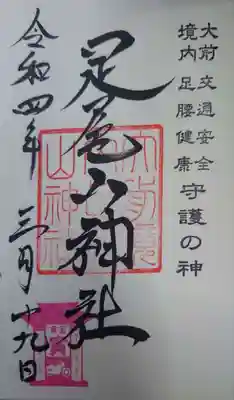 大前 交通安全
境内 足腰健康 守護の神
足尾山神社
令和四年 三月 十九日